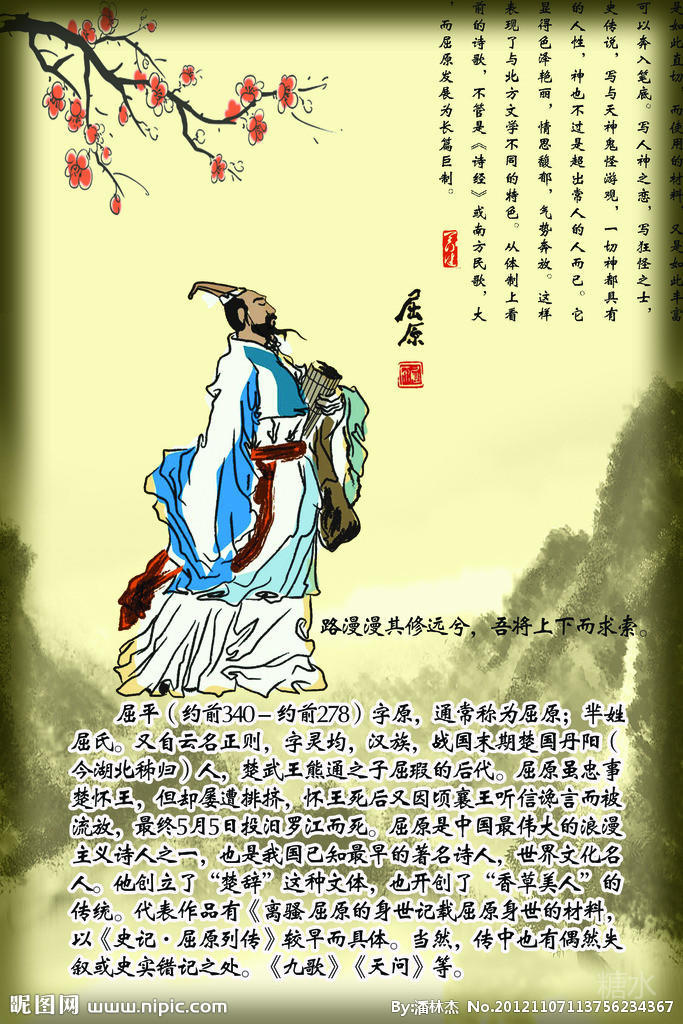 是如此直切，而使用的材料，又是如此丰富
可以奔入笔底。写人神之恋，写狂怪之士，
史传说，写与天神鬼怪游观，一切神都具有
的人性，神也不过是超出常人的人而已。它
显得色泽艳丽，情思馥郁，气势奔放。这样
表现了与北方文学不同的特色。从体制上看
前的诗歌，不管是《诗经》或南方民歌，大
，而屈原发展为长篇巨制。
屈原
路漫漫其修远兮，吾将上下而求索。
屈平（约前340－约前278）字原，通常称为屈原；芈姓
屈氏。又自云名正则，字灵均，汉族，战国末期楚国丹阳（
今湖北秭归）人，楚武王熊通之子屈瑕的后代。屈原虽忠事
楚怀王，但却屡遭排挤，怀王死后又因顷襄王听信谗言而被
流放，最终5月5日投汨罗江而死。屈原是中国最伟大的浪漫
主义诗人之一，也是我国已知最早的著名诗人，世界文化名
人。他创立了“楚辞”这种文体，也开创了“香草美人”的
传统。代表作品有《离骚屈原的身世记载屈原身世的材料，
以《史记·屈原列传》较早而具体。当然，传中也有偶然失
叙或史实错记之处。《九歌》《天问》等。
糖水
昵图网 www.nipic.com
By:潘林杰 No.20121107113756234367